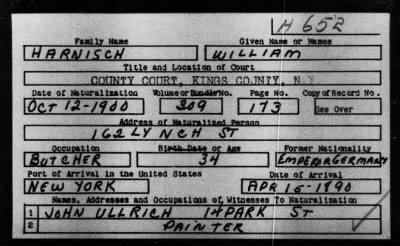 H 652
Family Name Given Name or Names
HARNISCH WILLIAM
Title and Location of Court
COUNTY COURT, KINGS COUNTY, N.Y.
Date of Naturalization Volume or Bundle No. Page No. Copy of Record No.
OCT 12-1900 309 173 See Over
Address of Naturalized Person
162 LYNCH ST
Occupation Birth Date or Age Former Nationality
BUTCHER 34 EMPEROR GERMANY
Port of Arrival in the United States Date of Arrival
NEW YORK APR 15-1890
Names, Addresses and Occupations of Witnesses To Naturalization
1 JOHN ULLRICH 14 PARK ST
2 PAINTER